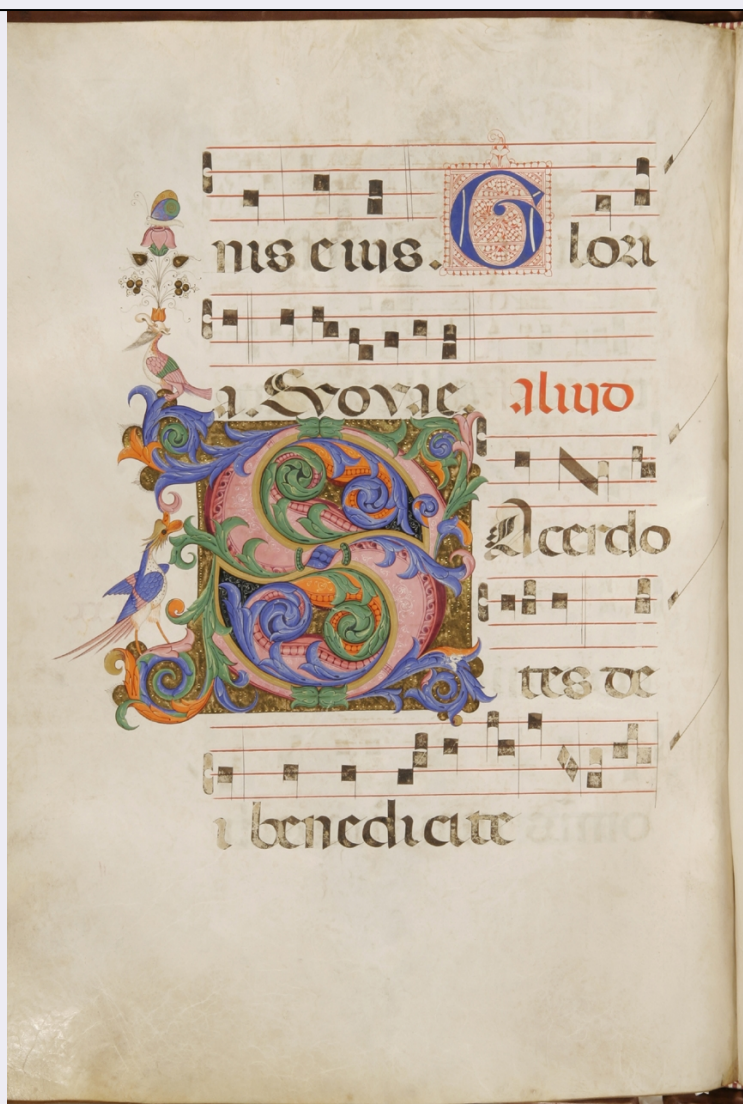 nis eius. Glori
a. Evovae. aliud
SAcerdo
tes de
i benedicite